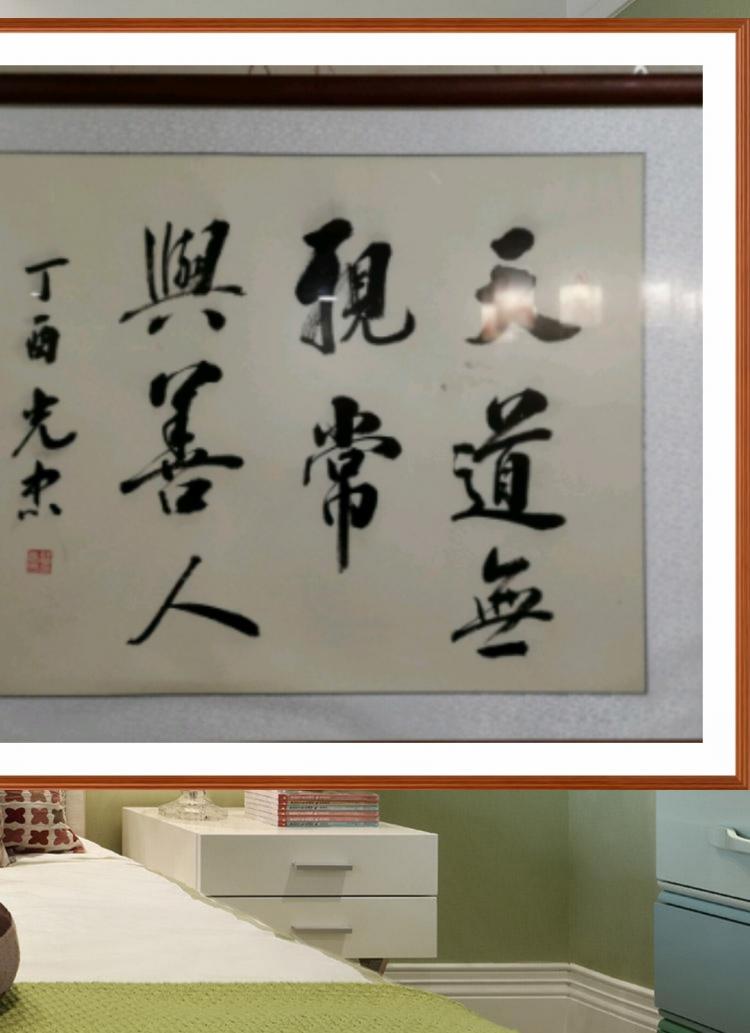 天道無
親常
與善人
丁酉光杰